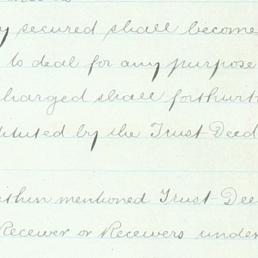 y secured shall become
to deal for any purpose
charged shall forthwith
stituted by the Trust Deed
ithin mentioned Trust Dee
Receiver or Receivers under